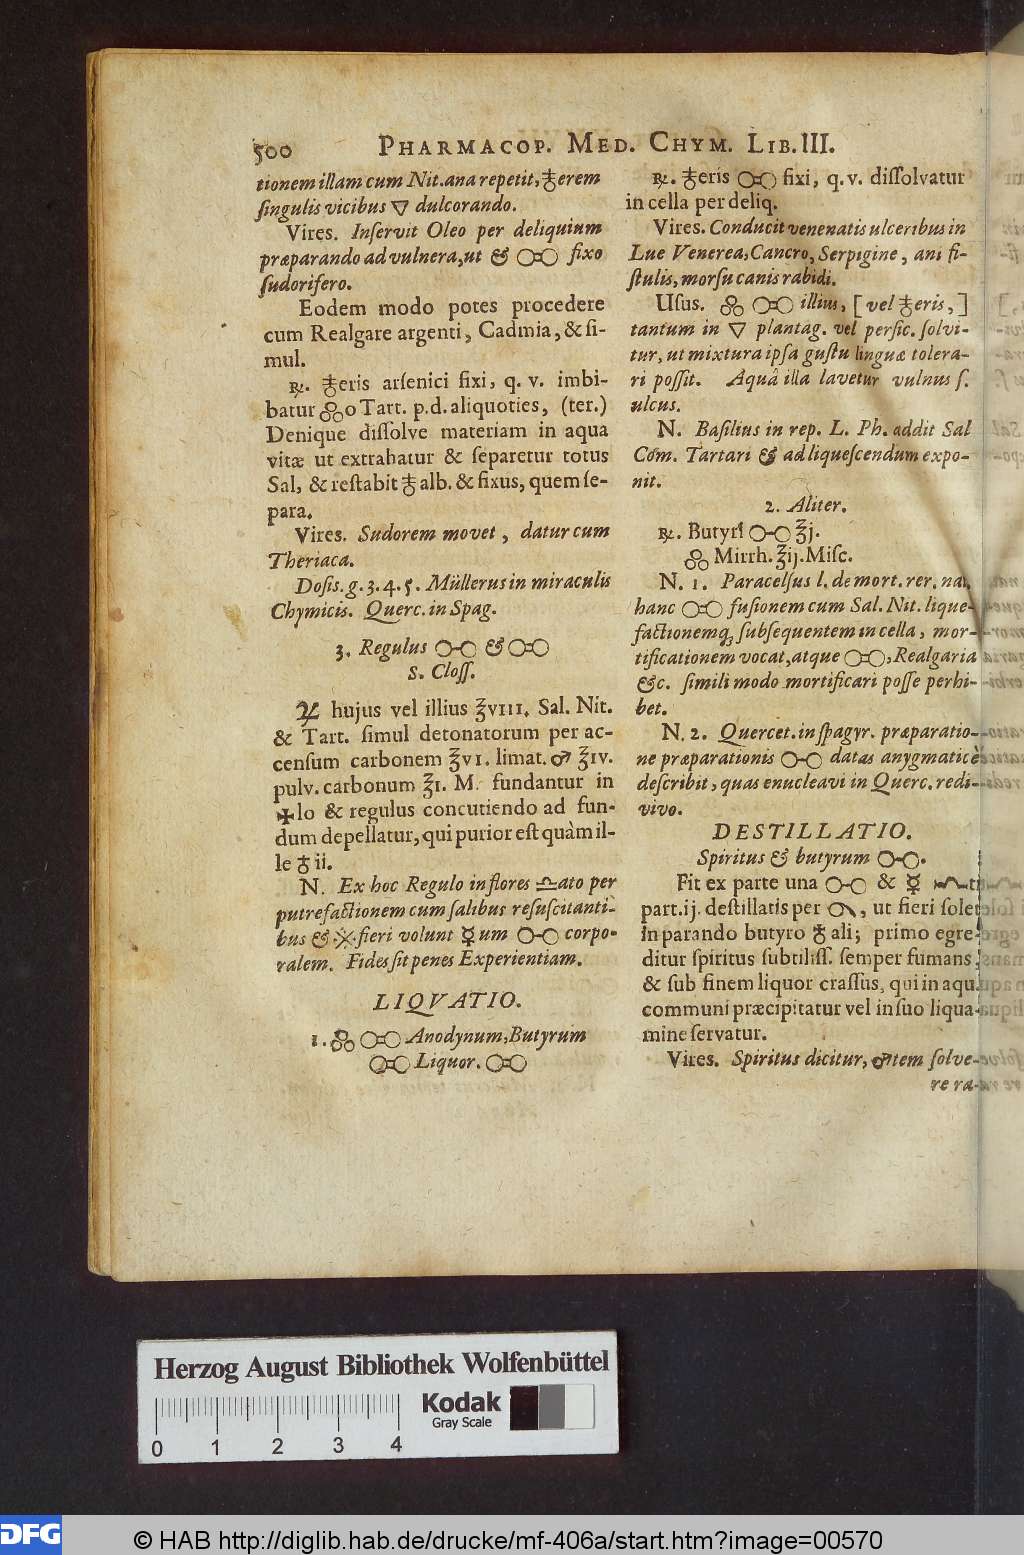 500 PHARMACOP. MED. CHYM. LIB. III.
tionem illam cum Nit. ana repetit, ♁erem
ſingulis vicibus 🜄 dulcorando.
Vires. Inſervit Oleo per deliquium
præparando ad vulnera, ut & o-o fixo
ſudorifero.
Eodem modo potes procedere
cum Realgare argenti, Cadmia, & ſi-
mul.
℞. ♁eris arſenici fixi, q. v. imbi-
batur o Tart. p. d. aliquoties, (ter.)
Denique diſſolve materiam in aqua
vitæ ut extrahatur & ſeparetur totus
Sal, & reſtabit ♁ alb. & fixus, quem ſe-
para.
Vires. Sudorem movet, datur cum
Theriaca.
Doſis. g. 3. 4. 5. Müllerus in miraculis
Chymicis. Querc. in Spag.
3. Regulus o-o & o-o
S. Cloſſ.
♃ hujus vel illius ℥VIII. Sal. Nit.
& Tart. ſimul detonatorum per ac-
cenſum carbonem ℥VI. limat. ♂ ℥IV.
pulv. carbonum ℥I. M. fundantur in
✠lo & regulus concutiendo ad fun-
dum depellatur, qui purior eſt quàm il-
le ♁ii.
N. Ex hoc Regulo in flores ♎ato per
putrefactionem cum ſalibus reſuſcitanti-
bus & ※ fieri volunt ☿um o-o corpo-
ralem. Fides ſit penes Experientiam.
LIQVATIO.
1. o-o Anodynum, Butyrum
o-o Liquor. o-o
℞. ♁eris o-o fixi, q. v. diſſolvatur
in cella per deliq.
Vires. Conducit venenatis ulceribus in
Lue Venerea, Cancro, Serpigine, ani fi-
ſtulis, morſu canis rabidi.
Uſus. o-o illius, [vel ♁eris,]
tantum in 🜄 plantag. vel perſic. ſolvi-
tur, ut mixtura ipſa guſtu linguæ tolera-
ri poſſit. Aquâ illa lavetur vulnus ſ.
ulcus.
N. Baſilius in rep. L. Ph. addit Sal
Com. Tartari & ad liqueſcendum expo-
nit.
2. Aliter.
℞. Butyri o-o ℥j.
Mirrh. ℥ij. Miſc.
N. 1. Paracelſus l. de mort. rer. nat.
hanc o-o fuſionem cum Sal. Nit. lique-
factionemq; ſubſequentem in cella, mor-
tificationem vocat, atque o-o, Realgaria
&c. ſimili modo mortificari poſſe perhi-
bet.
N. 2. Quercet. in ſpagyr. præparatio-
ne præparationis o-o datas anygmaticè
deſcribit, quas enucleavi in Querc. redi-
vivo.
DESTILLATIO.
Spiritus & butyrum o-o.
Fit ex parte una o-o & ☿
part. ij. deſtillatis per , ut fieri ſolet
in parando butyro ♁ali; primo egre-
ditur ſpiritus ſubtiliſſ. ſemper fumans,
& ſub finem liquor craſſus, qui in aqu.
communi præcipitatur vel in ſuo liqua-
mine ſervatur.
Vires. Spiritus dicitur, ♂tem ſolve-
re ra-
Herzog August Bibliothek Wolfenbüttel
Kodak
Gray Scale
0 1 2 3 4
DFG
© HAB http://diglib.hab.de/drucke/mf-406a/start.htm?image=00570